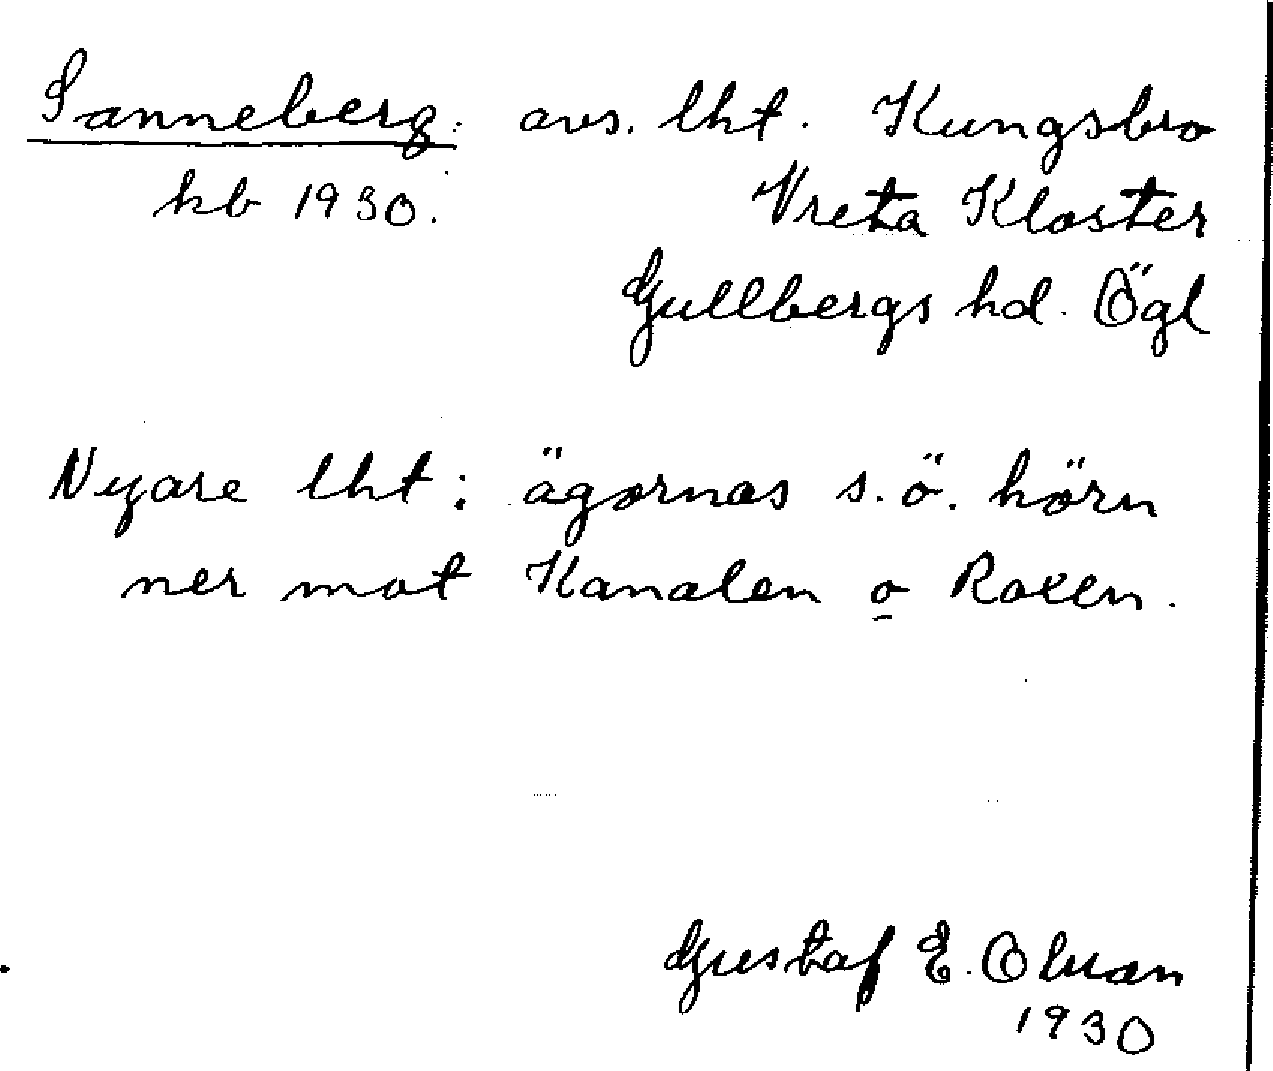 Sanneberg. avs. lht. Kungsbro
kb 1930. Vreta Kloster
Gullbergs hd. Ögl
Nyare lht: ägornas s.ö. hörn
ner mot Kanalen o Roxen.
Gustaf E. Olsson
1930